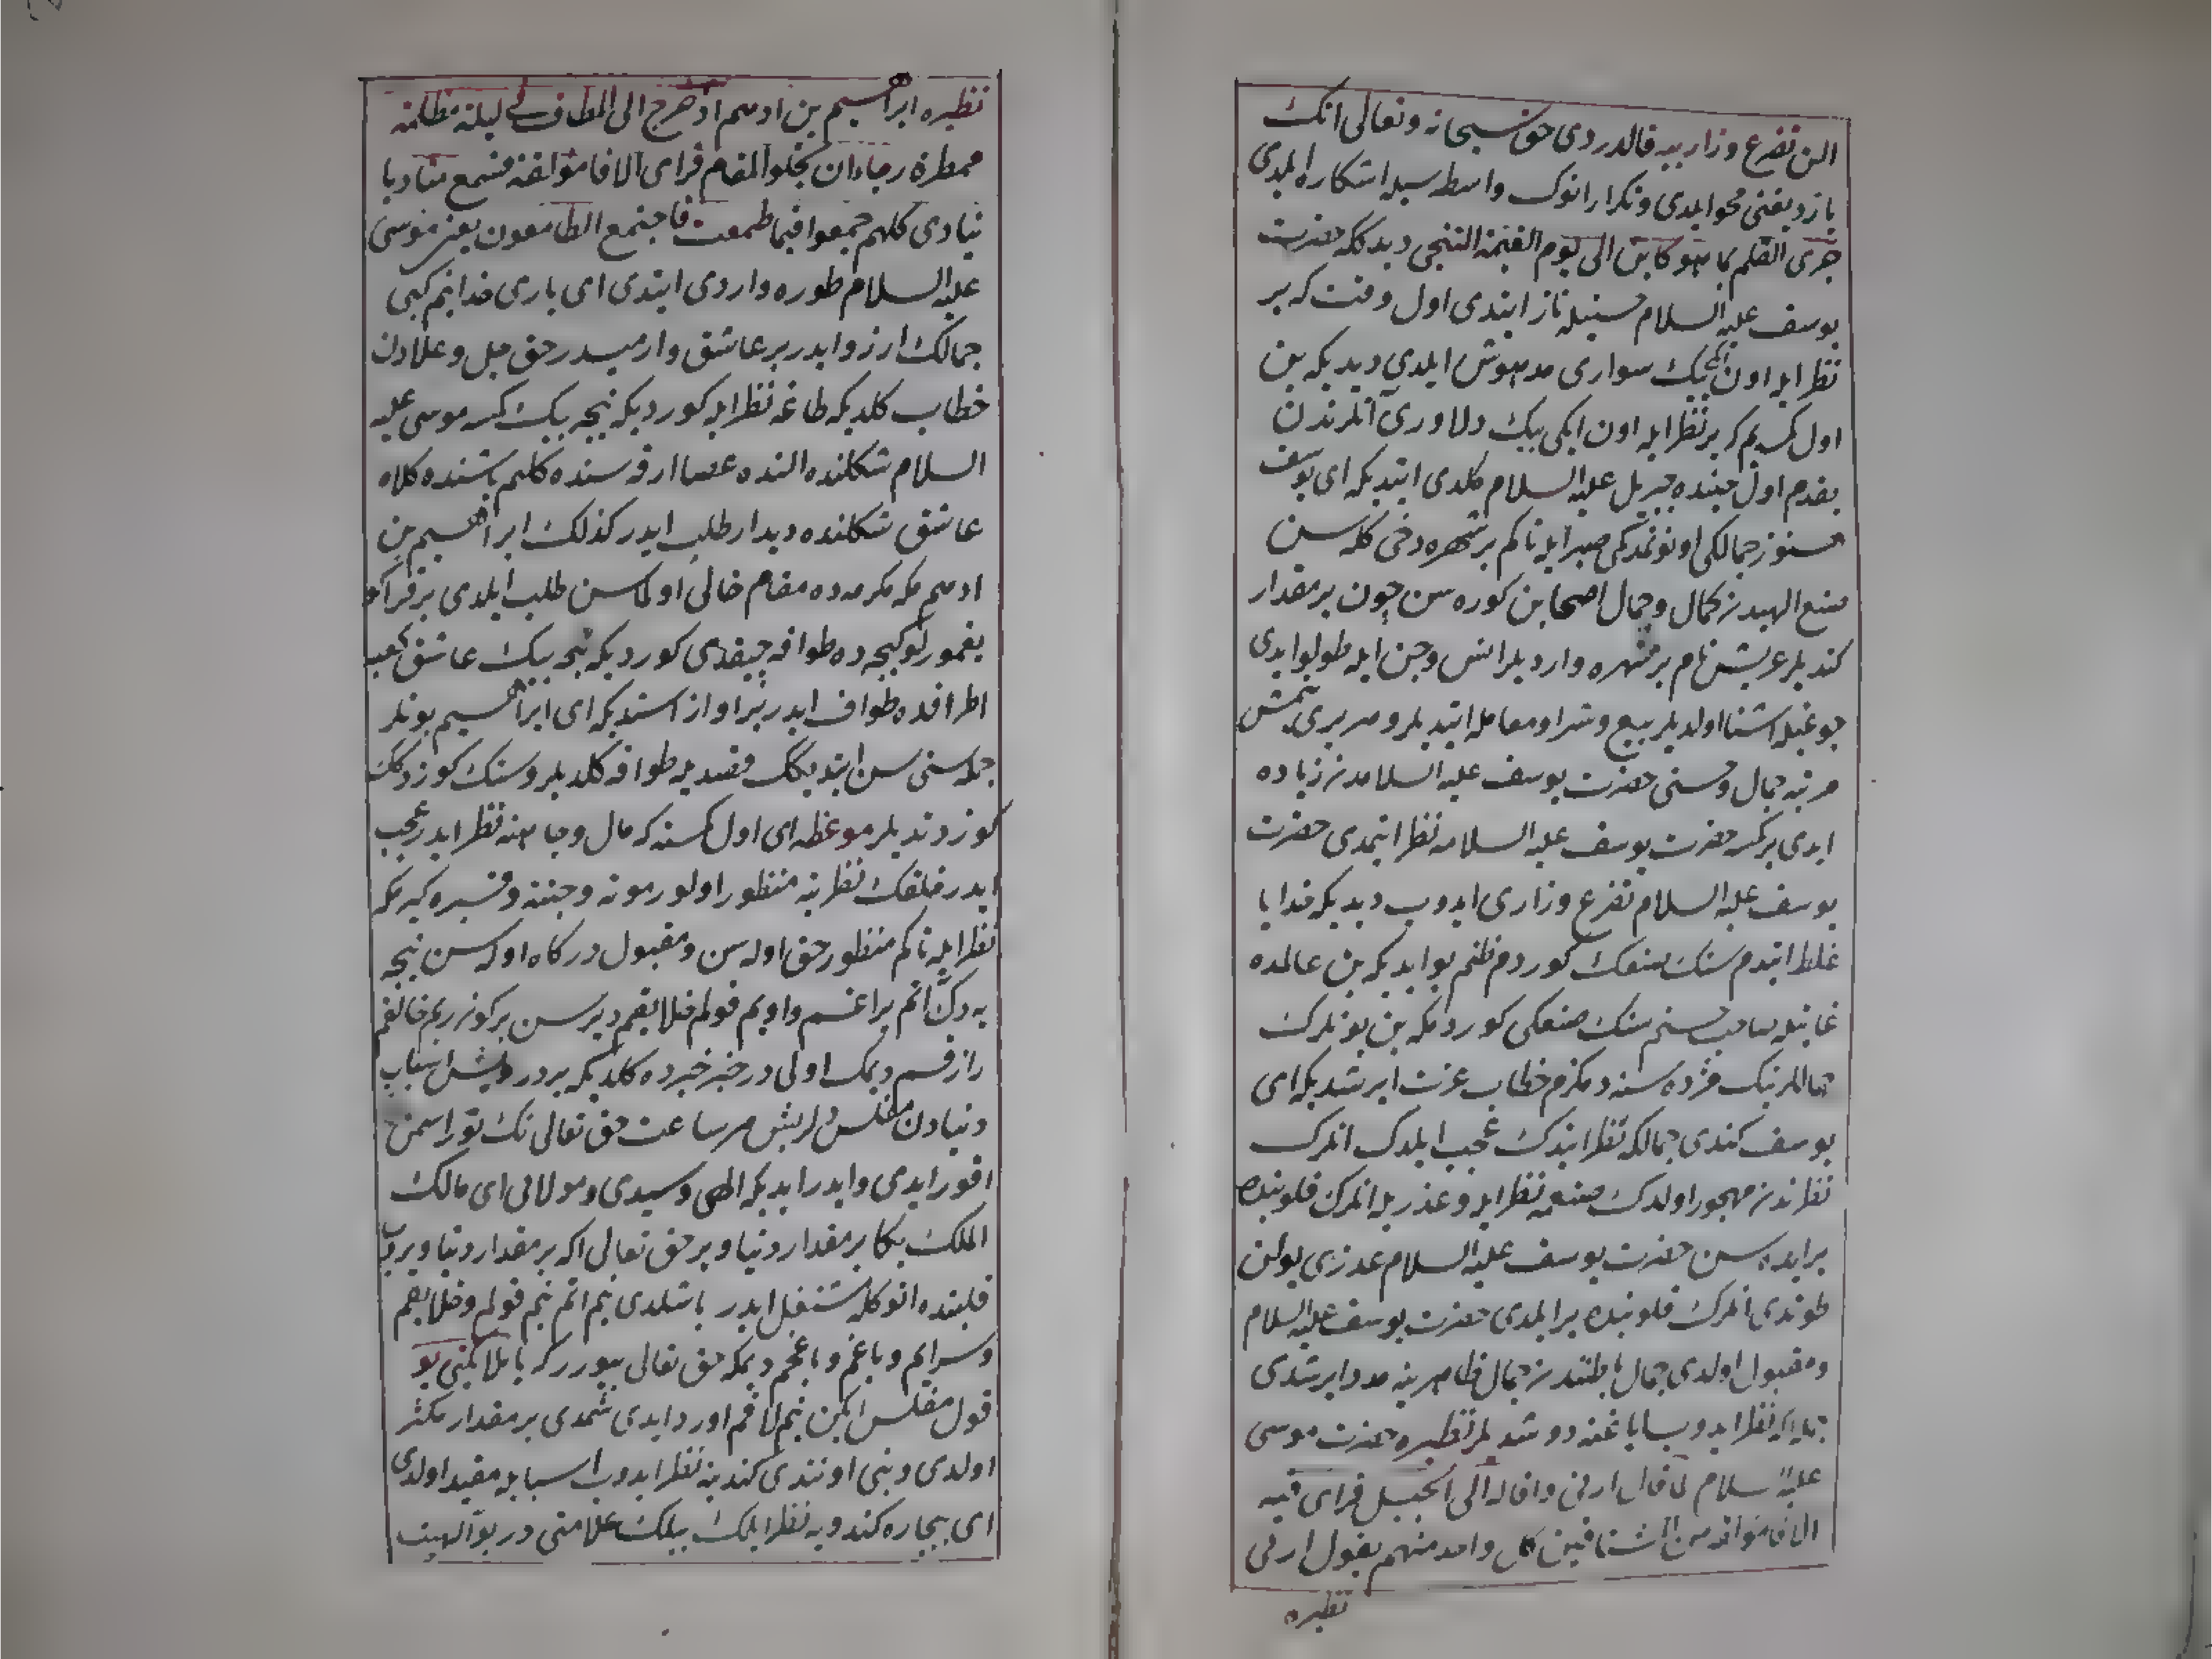 الن تضرع وزاريیه قالدردی حق سبحانه وتعالی انك
یازویی محو ایلدی وتکرار انوك واسطه سیله اشکاره ایلدی
جری القلم بما هو کاین الی یوم القیمة دیدکه حضرت
یوسف علیه السلام حسنیله ناز ایتدی اول وقت که بر
نظر ایله اون ایکی بیك سواری مدهوش ایلدی دیدیکه بن
اول کسیم که بر نظر ایله اون ایکی بیك دلاوری آتلرندن
یقدم اول حینده جبریل علیه السلام کلدی ایتدیکه ای یوسف
هنوز جمالکی اونوتمدکمی صبر ایله تا کم بر شهره دخی کله سن
صنع الهیدن کمال وجمال اصحابن کوره سن چون بر مقدار
کندیلر عریش نام بر شهره واردیلر انس وجن ایله طولو ایدی
جوغیله اشنا اولدیلر بیع وشرا ومعامله ایتدیلر وهر بری یتمش
مرتبه جمال وحسنی حضرت یوسف علیه السلامدن زیاده
ایدی بر کسه حضرت یوسف علیه السلامه نظر ایتمدی حضرت
یوسف علیه السلام تضرع وزاری ایدوب دیدیکه خدایا
غلط ایتدم سنك صنعك کوردم ظنم بو ایدیکه بن عالمده
غایتله صاحب حسنم سنك صنعکی کوردمکه بن بونلرك
جماللرینك مزده سنه دکمزم خطاب عزت ایرشدیکه ای
یوسف کندی جمالکه نظر ایتدك عجب ایلدك انلرك
نظرندن مهجور اولدك صنعمه نظر ایله وعذر ایله انلرك قلوبنده
یر ایده سن حضرت یوسف علیه السلام عذری یولن
طوتدی انلرك قلوبنده یر ایلدی حضرت یوسف علیه السلام
ومقبول اولدی جمال باطنندن جمال ظاهرینه مدد ایرشدی
جمله سی نظر ایدوب ایاغنه دوشدیلر نظیره حضرت موسی
علیه السلام لما قال ارنی واقاله الی الجبل فرای فیه
الافا مؤلفه من المشتاقین کل واحد منهم یقول ارنی
نظیره
نظیره ابراهیم بن ادهم اذ خرج الی المطاف فی لیلة مظلمة
ممطرة رجاء ان یخلو المقام فرای الافا مؤلفة فسمع منادیا
ینادی کلهم جمعوا فیما طمعت فاجتمع الطامعون یعنی موسی
علیه السلام طوره واردی ایتدی ای باری خدا بنم کبی
جمالك ارزو ایدر بر عاشق وارمیدر حق جل وعلادن
خطاب کلدیکه طاغه نظر ایله کوردیکه نیجه بیك کسه موسی علیه
السلام شکلنده النده عصا ارقه سنده کلیم باشنده کلاه
عاشق شکلنده دیدار طلب ایدر کذلك ابراهیم بن
ادهم مکه مکرمه ده مقام خالی اولماسن طلب ایلدی بر قراکو
یغمورلو کیجه ده طوافه چیقدی کوردیکه نیجه بیك عاشق کعبه
اطرافده طواف ایدر بر اواز اشتدیکه ای ابراهیم بونلر
جمله سی سن ایتدیکك قصدیله طوافه کلدیلر وسنك کوزدیکك
کوزدتدیلر موعظه ای اول کسنه که مال وجاهنه نظر ایدر عجب
ایدر خلقك نظرینه منظور اولور موته وجننه وقبره کیرمکه
نظر ایله تا کم منظور حق اوله سن ومقبول درکاه اوله سن نیجه
یه دك اتم براغم واویم قولم خلایقم دیرسن بر کون ربم خالقم
رازقم دیمك اولی در خبر خبرده کلدیکه بر درویش اسباب
دنیادن مفلس دلریش هر ساعت حق تعالی نك تورا سمن
اقور ایدی وایدر ایدیکه الهی وسیدی ومولائی ای مالك
الملك بکا بر مقدار دنیا ویر حق تعالی اکه بر مقدار دنیا ویروب
قلبنده انوکله مشتغل ایدر باشلدی بنم اتم بنم قولم وخلایقم
وسرایم وباغم وباغچم دیمکه حق تعالی بیوررکه یا ملائکتی بو
قول مفلس ایکن بنم خالقم اور ایدی شمدی بر مقدار مکثر
اولدی وبنی اونتدی کندینه نظر ایدوب اسبابله مقید اولدی
ای بیچاره کندویه نظر ایلمك بیلمك علامتی در بو الهیت